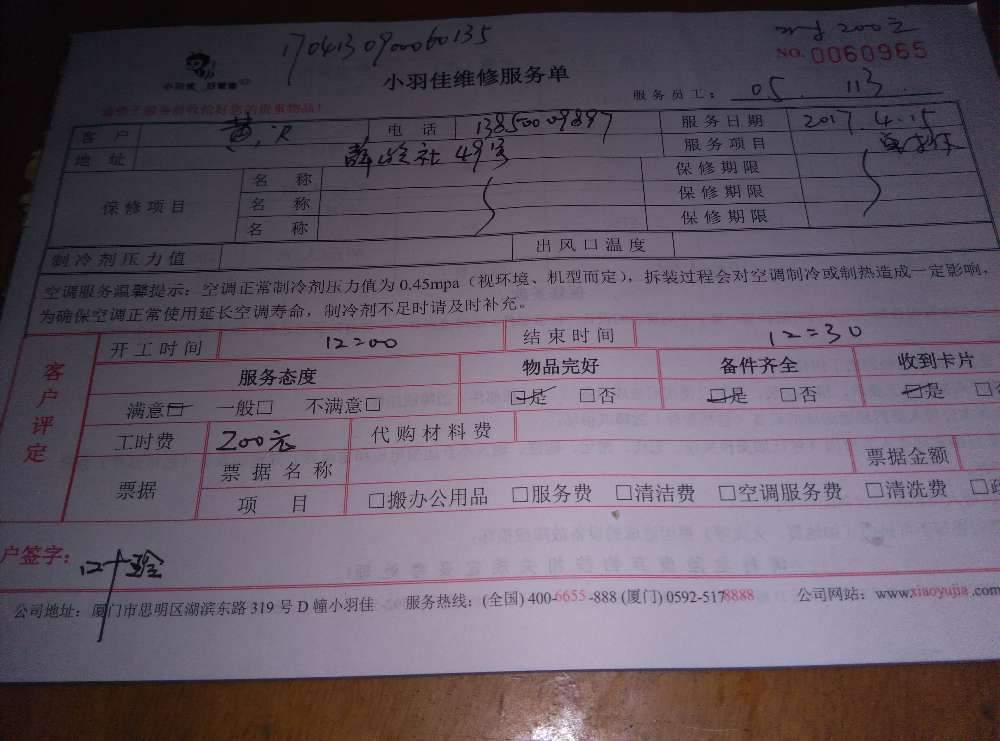 170413090060135
200元
NO.0060965
小羽佳 好管家
小羽佳维修服务单
服务员工： 05 113
客户 黄 电话 13850009897 服务日期 2017.4.15
地址 社49号 服务项目
保修项目 名称 保修期限
名称 保修期限
名称 保修期限
制冷剂压力值 出风口温度
空调服务温馨提示：空调正常制冷剂压力值为 0.45mpa（视环境、机型而定），拆装过程会对空调制冷或制热造成一定影响，
为确保空调正常使用延长空调寿命，制冷剂不足时请及时补充。
客户评定
开工时间 12:00 结束时间 12:30
服务态度 物品完好 备件齐全 收到卡片
满意□ 一般□ 不满意□ □是 □否 □是 □否 □是 □否
工时费 200元 代购材料费
票据 票据名称 票据金额
项目 □搬办公用品 □服务费 □清洁费 □空调服务费 □清洗费
户签字：
公司地址：厦门市思明区湖滨东路 319 号 D 幢小羽佳 服务热线：(全国) 400-6655-888 (厦门) 0592-5178888 公司网站：www.xiaoyujia.com